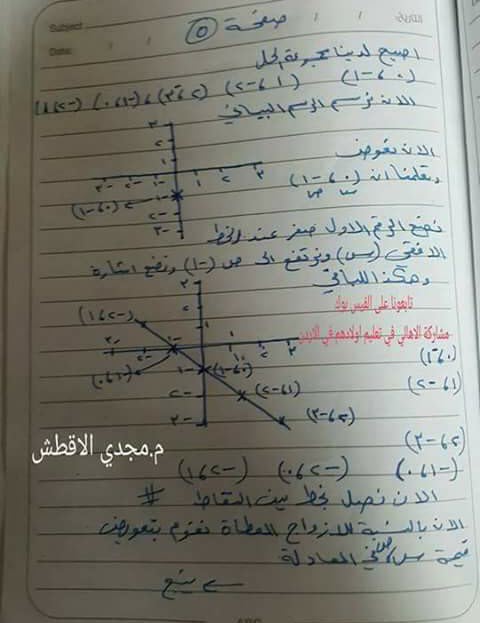 Subject
التاريخ / /
Date: / /
صفحة (٥)
اصبح لدينا مجموعة الحل
(٠،-١) (١،-٢) (٢،-٣)، (-١،٠) (-٢،١)
الان نرسم الرسم البياني
الان نعوض
(٠،-١)
س ص
نضع الرقم الاول صفر عند الخط
الافقي (س) ونرتفع الى ص (-١) ونضع اشارة
وهكذا للباقي
تابعونا على الفيس بوك
مشاركة الاهالي في تعليم اولادهم في الاردن
(-٢،١)
(٠،-١)
(-١،٠)
(٠،-١)
(١،-٢)
(١،-٢)
(٢،-٣)
(٢،-٣)
م.مجدي الاقطش
(-١،٠) (-٢،٠) (-٢،١)
الان نصل بخط بين النقاط #
الان بالنسبة للازواج المعطاة نقوم بتعويض
قيمة س، ص في المعادلة
يتبع